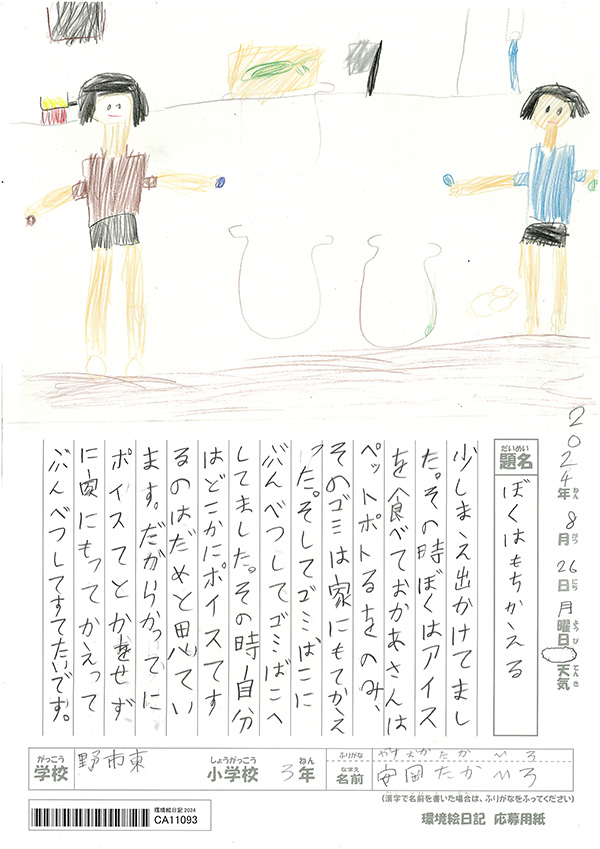 2024年8月26日月曜日 天気
ねん がつ にち ようび てんき
だいめい
題名 ぼくはもちかえる
少しまえ出かけてまし
た。その時ぼくはアイス
を食べておかあさんは
ペットポトるをのみ、
そのゴミは家にもてかえ
った。そしてゴミばこに
ぶんべつしてゴミばこへ
してました。その時自分
はどこかにポイスてす
るのはだめと思てい
ます。だがらかってに
ポイスてとかをせず
に家にもってかえって
ぶんべつしてすてたいです。
がっこう しょうがっこう ねん
学校 野市東 小学校 3年
ふりがな やすおかたかひろ
なまえ
名前 安岡たかひろ
(漢字で名前を書いた場合は、ふりがなをふってください)
環境絵日記2024
CA11093
環境絵日記 応募用紙